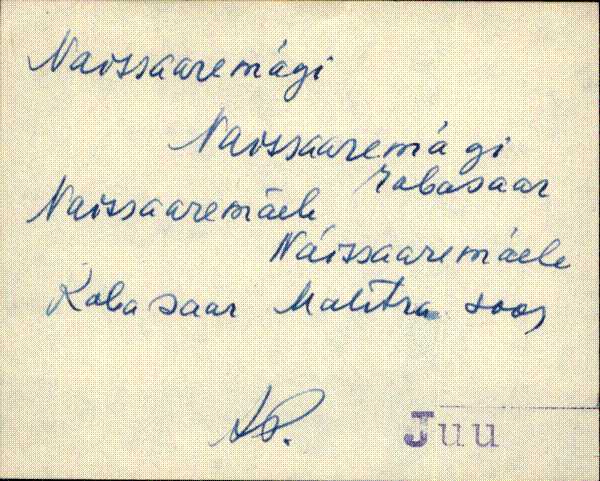 Naissaaremägi
Naissaaremägi
Rabasaar
Naissaaremäele
Naissaaremäele
Rabasaar Mahtra soos
Juu